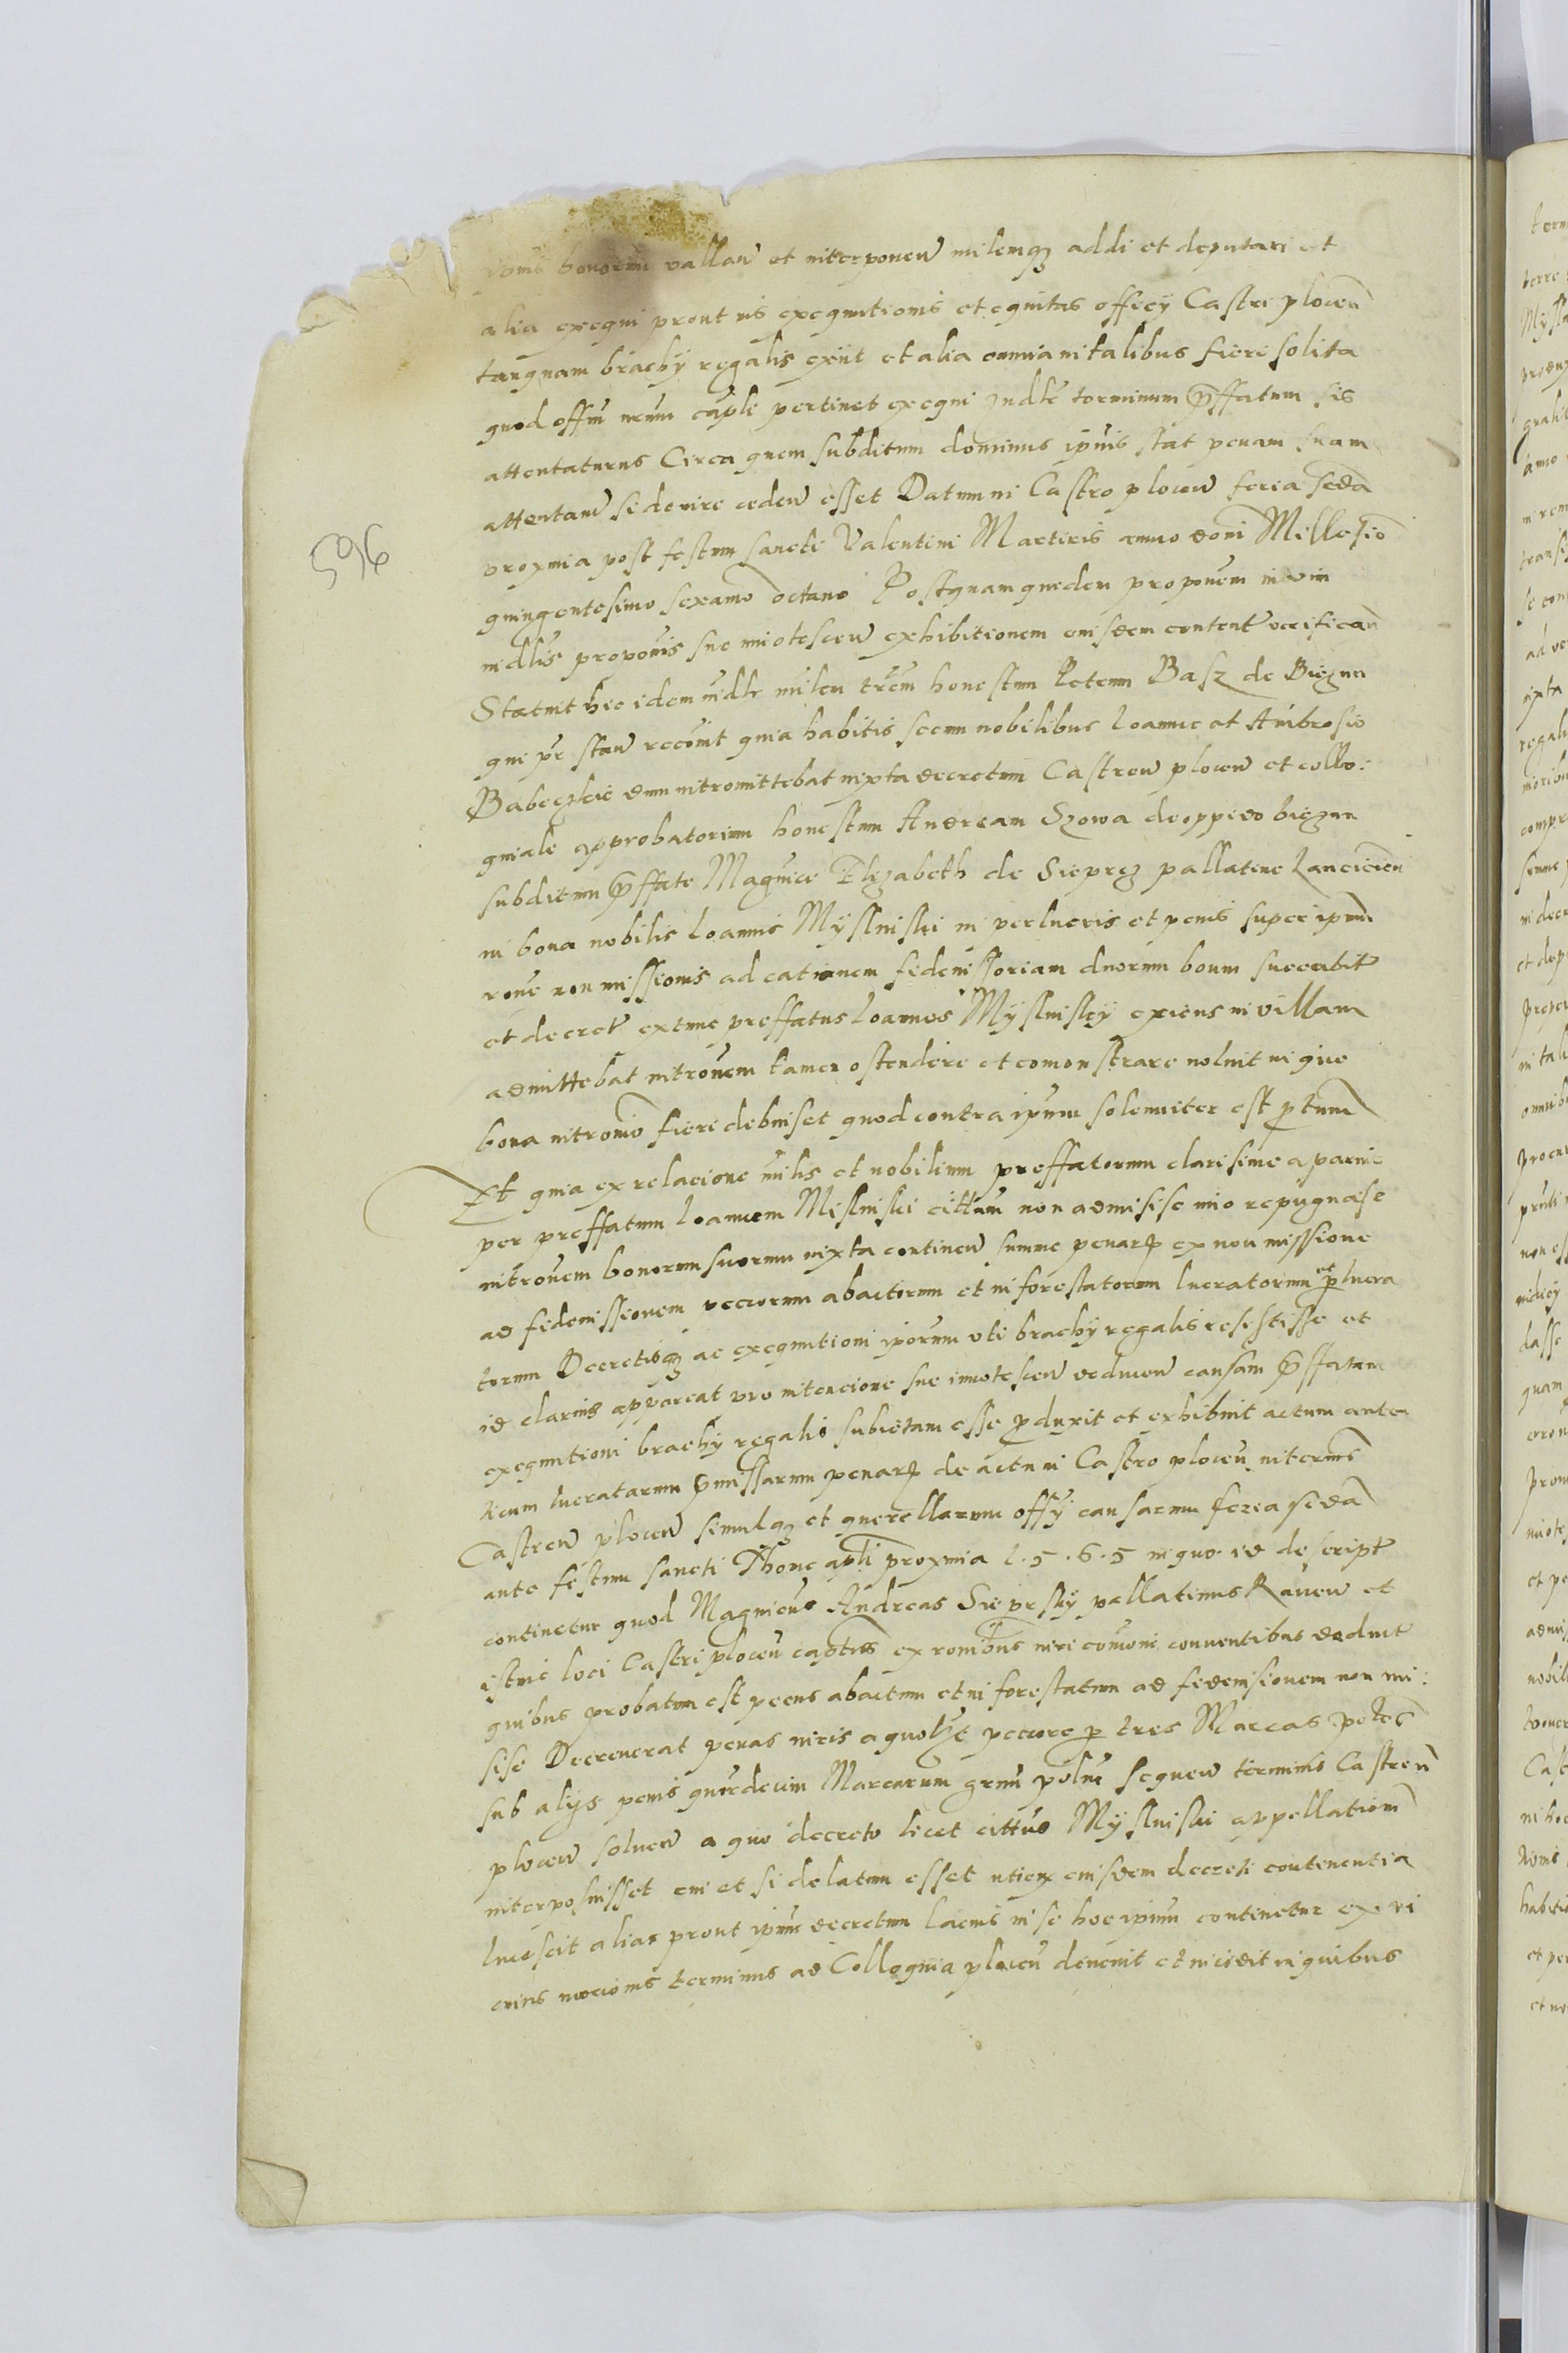 bonorum vallan et interponen milemq addi et deputari et
alia exequi prout vis exequutionis et equitas officy Castri plocen
tanquam brachy regalis exiit et alia omnia in talibus fieri solita
quod offm meum capli pertinet exequi Indlr terminum pffatum sis
attentaturus Circa quem subditum dominus ipius stat penam suam
attentam si de iure ceden esset Datum in Castro plocen feria scda
proxmia post festum sancti Valentini Martiris anno doni Millesio
quingentesimo sexamo octavo Postquam quedem proponem in vim
indlis proponis sue inotescen exhibitionem eiusdem content verifican
Statuit hic idem indlr milem trem honestum Petrum Basz de Biezun
qui pr stan recouit quia habitis secum nobilibus Ioanne et Ambrosio
Babeczkie dum intromittebat iuxta decretum Castren plocen et collo:
quiale approbatorium honestum Andream Szowa de oppido biezun
subditum pffate Magnice Elizabeth de Sieprcz pallatine Lancicien
in bona nobilis Ioannis Myslinski in verlucris et penis super ipm
rone non missionis ad cationem fideiussoriam duorum boum succubit
et decret extunc preffatus Ioannes Myslinsky exiens in villam
admittebat introuem tamen ostendere et comonstrare noluit in que
bona intromo fieri debuiset quod contra ipum solenniter est ptum
Et quia ex relacione milis et nobilium preffatorum clarisime aparuie
per preffatum Ioannem Mislinski cittum non admisise imo repugnase
introuem bonorum suorum iuxta continen summe penarp ex non missione
ad fideiussionem pecorum abactorum et inforestatorum lucratorum et plucra
torum Decretisq ac exequutioni iporum vti brachy regalis resistisse et
id clarius appareat pro intencione sue inotescen deducen causam pffatam
exequutioni brachy regalis subictam esse pduxit et exhibuit actum anten
ticum lucratarum pmissarum penarp de actu in Castro plocen in termis
Castren plocen simulq et querellarum offy causarum feria scda
ante festum sancti Thome apli proxmia 1.5.6.5 in quo id descript
continetur quod Magnicus Andreas Sieprsky pallatinus Raven et
istius loci Castri plocen captus ex ronibus iuri conuoni conuentibus deduct
quibus probatum est pecus abactum et inforestatum ad fideiusionem non mi:
sise Decreuerat penas iuris a quolyt pecore p tres Marcas petes
sub alys penis quurdecim Marcarum grm polue sequen terminis Castren
plocen soluen a quo decreto licet cittus Myslinski appellationm
interposuisset cui et si delatum esset utiex eiusdem decreti continentia
lucescit alias prout ipum decretum lacius in se hoc ipum continetur ex vi
cuius mocionis terminus ad Colloquia plocen deuenit et incidit in quibus
596